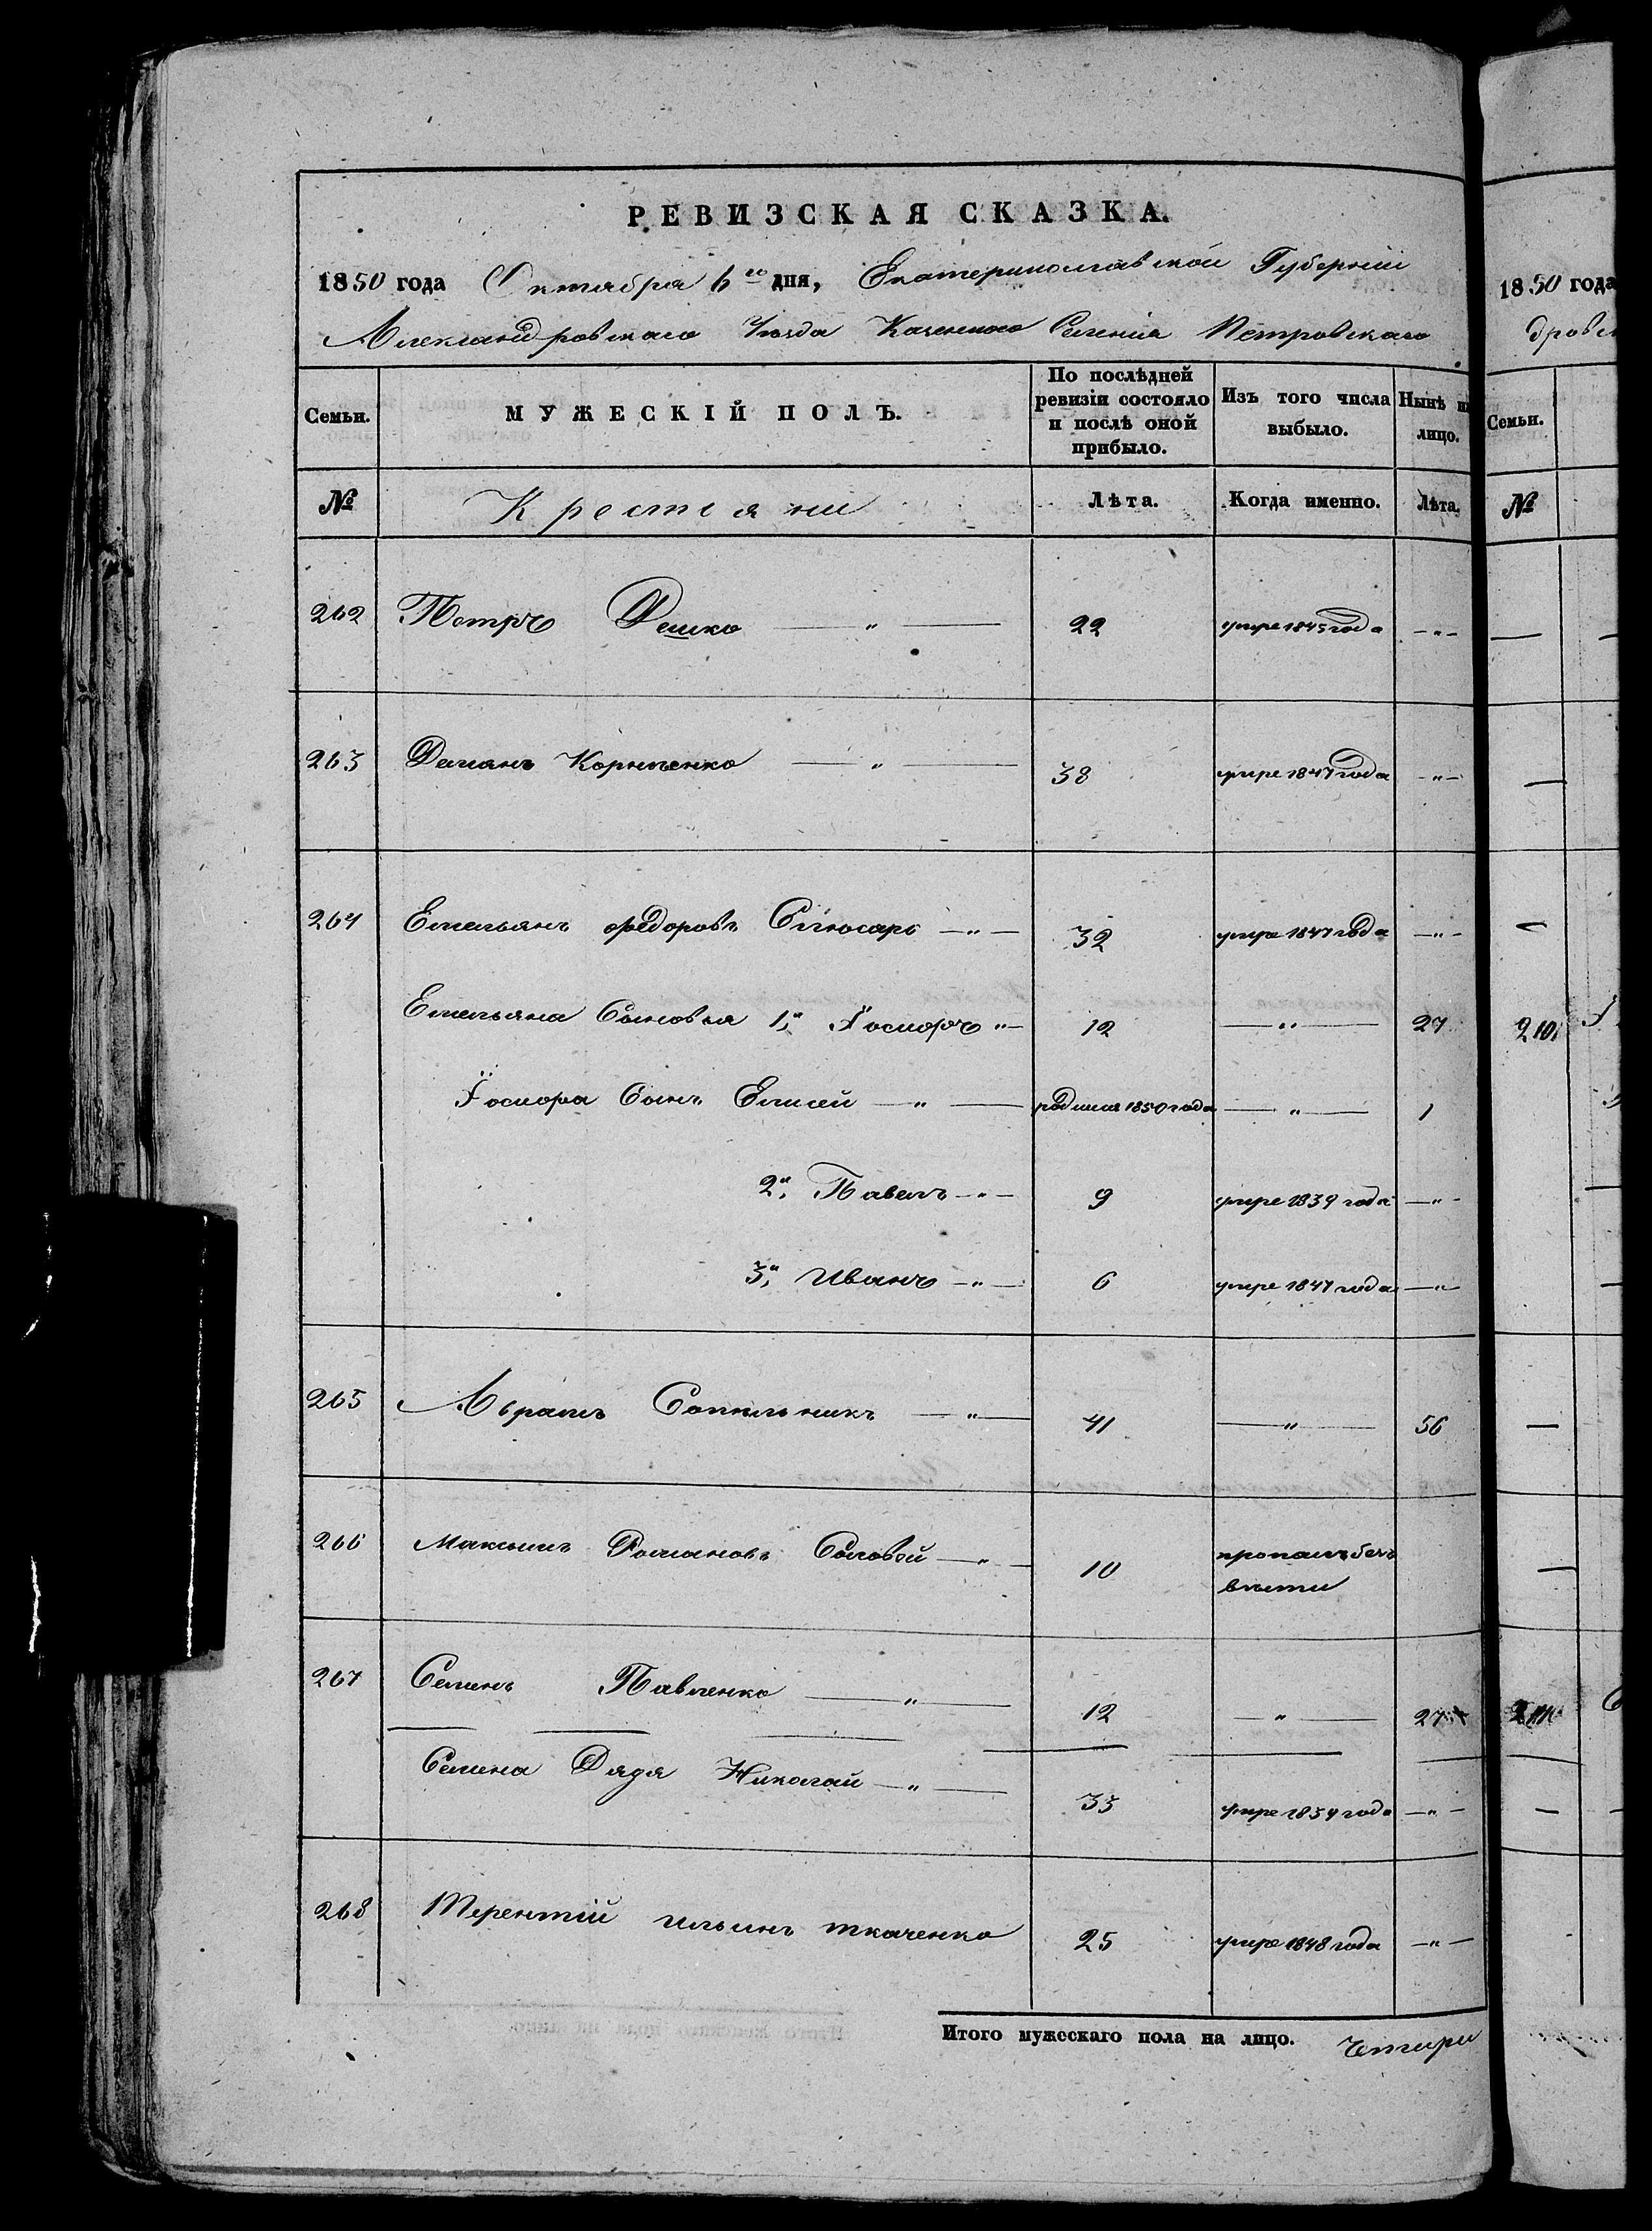 РЕВИЗСКАЯ СКАЗКА.
1850 года Октября 6го дня, Екатеринославской Губерніи
Александровскаго Уезда Казеннаго Селенія Петровскаго
Семьи. МУЖЕСКІЙ ПОЛЪ. По послѣдней ревизіи состояло и послѣ оной прибыло. Изъ того числа выбыло. Нынѣ на лицо.
№ Крестьяни Лѣта. Когда именно. Лѣта.
262 Петръ Дешко — " — 22 умре 1845 года — " —
263 Демянъ Корниенко — " — 38 умре 1847 года — " —
264 Емельянъ Федоровъ Слюсарь — " — 32 умре 1847 года — " —
Емельяна Сыновья 1й Їосифъ " — 12 — " — 27
Їосифа Сынъ Елисей — " — родился 1850 года — " — 1
2й Павелъ — " — 9 умре 1839 года — " —
3й Иванъ — " — 6 умре 1847 года — " —
265 Абрамъ Сапильникъ — " — 41 — " — 56
266 Максимъ Романовъ Соловей — " — 10 пропалъ безъ
вести
267 Семенъ Павленко — " — 12 — " — 27
Семена Дядя Николай — " — 33 умре 1834 года — " —
268 Терентій Ильинъ Ткаченко 25 умре 1848 года — " —
Итого мужескаго пола на лицо. Четыри
1850 года
Семьи.
№
210